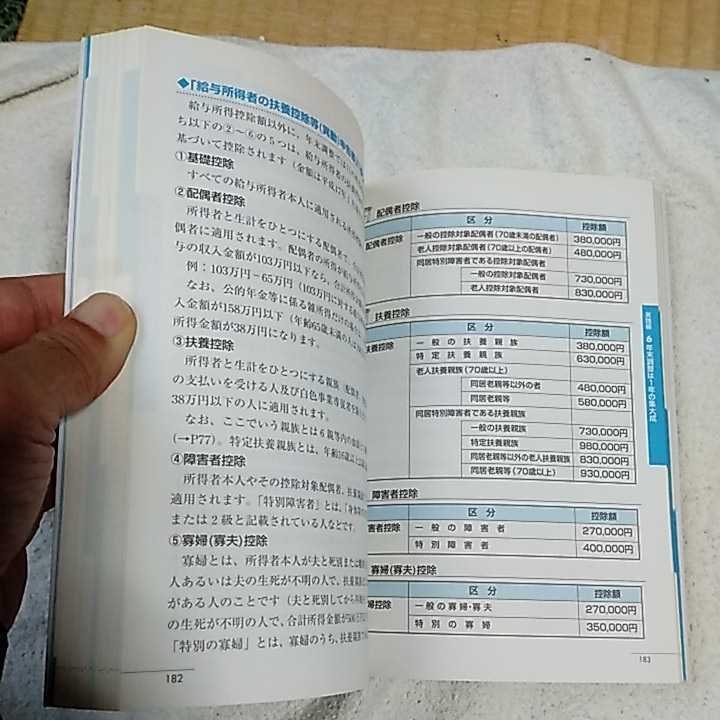 ◆「給与所得者の扶養控除等(異動)申告書」
給与所得控除額以外に、年末調整では
ち以下の②~⑥の5つは、給与所得者の扶養
基づいて控除されます(金額は平成17年
①基礎控除
すべての給与所得者本人に適用される所得
②配偶者控除
所得者と生計をひとつにする配偶者で、合
偶者に適用されます。配偶者の所得が給与所
与の収入金額が103万円以下なら、合計所得
例:103万円-65万円(103万円に対する給
なお、公的年金等に係る雑所得だけの場合
入金額が158万円以下(年齢65歳未満の人は
得金額が38万円になります。
③扶養控除
所得者と生計をひとつにする親族(配偶者
の支払いを受ける人及び白色事業専従者を除
38万円以下の人に適用されます。
なお、ここでいう親族とは6親等内の血族
(→P77)。特定扶養親族とは、年齢16歳以上
④障害者控除
所得者本人やその控除対象配偶者、扶養親族
適用されます。「特別障害者」とは、「身体
または2級と記載されている人などです。
⑤寡婦(寡夫)控除
寡婦とは、所得者本人が夫と死別または離
人あるいは夫の生死が不明の人で、扶養親族
がある人のことです(夫と死別してから
の生死が不明の人で、合計所得金額が500
「特別の寡婦」とは、寡婦のうち、扶養親族
182
配偶者控除
区分 控除額
配偶者控除 一般の控除対象配偶者(70歳未満の配偶者) 380,000円
老人控除対象配偶者(70歳以上の配偶者) 480,000円
同居特別障害者である控除対象配偶者
一般の控除対象配偶者 730,000円
老人控除対象配偶者 830,000円
扶養控除
区分 控除額
扶養控除 一般の扶養親族 380,000円
特定扶養親族 630,000円
老人扶養親族(70歳以上)
同居老親等以外の者 480,000円
同居老親等 580,000円
同居特別障害者である扶養親族
一般の扶養親族 730,000円
特定扶養親族 980,000円
同居老親等以外の老人扶養親族 830,000円
同居老親等(70歳以上) 930,000円
障害者控除
区分 控除額
害者控除 一般の障害者 270,000円
特別障害者 400,000円
寡婦(寡夫)控除
区分 控除額
婦控除 一般の寡婦・寡夫 270,000円
特別の寡婦 350,000円
実践編 6 年末調整は1年の集大成
183